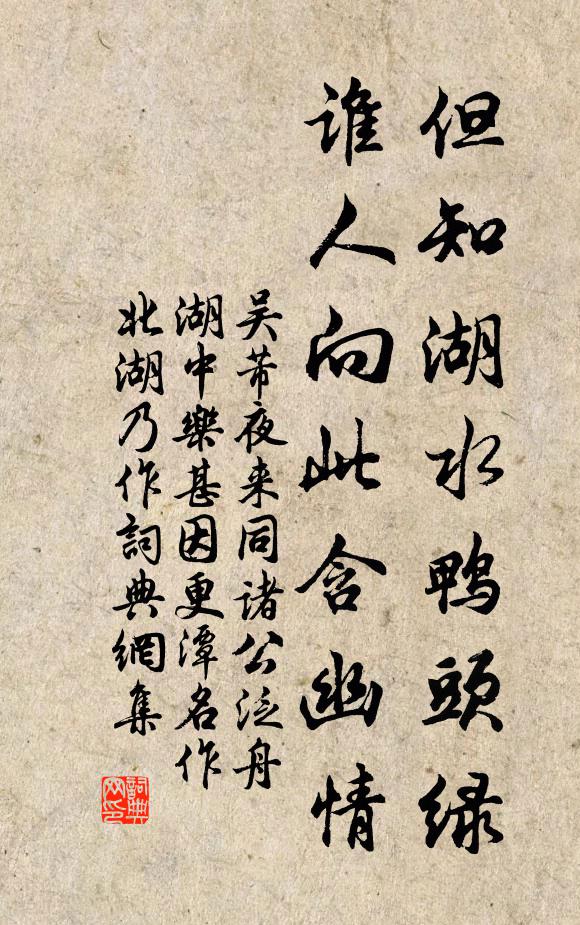 但知湖水鸭頭緑
谁人向此含幽情
吴芾夜来同諸公泛舟
湖中樂甚因更潭名作
北湖乃作詞典網集
詞典
网印